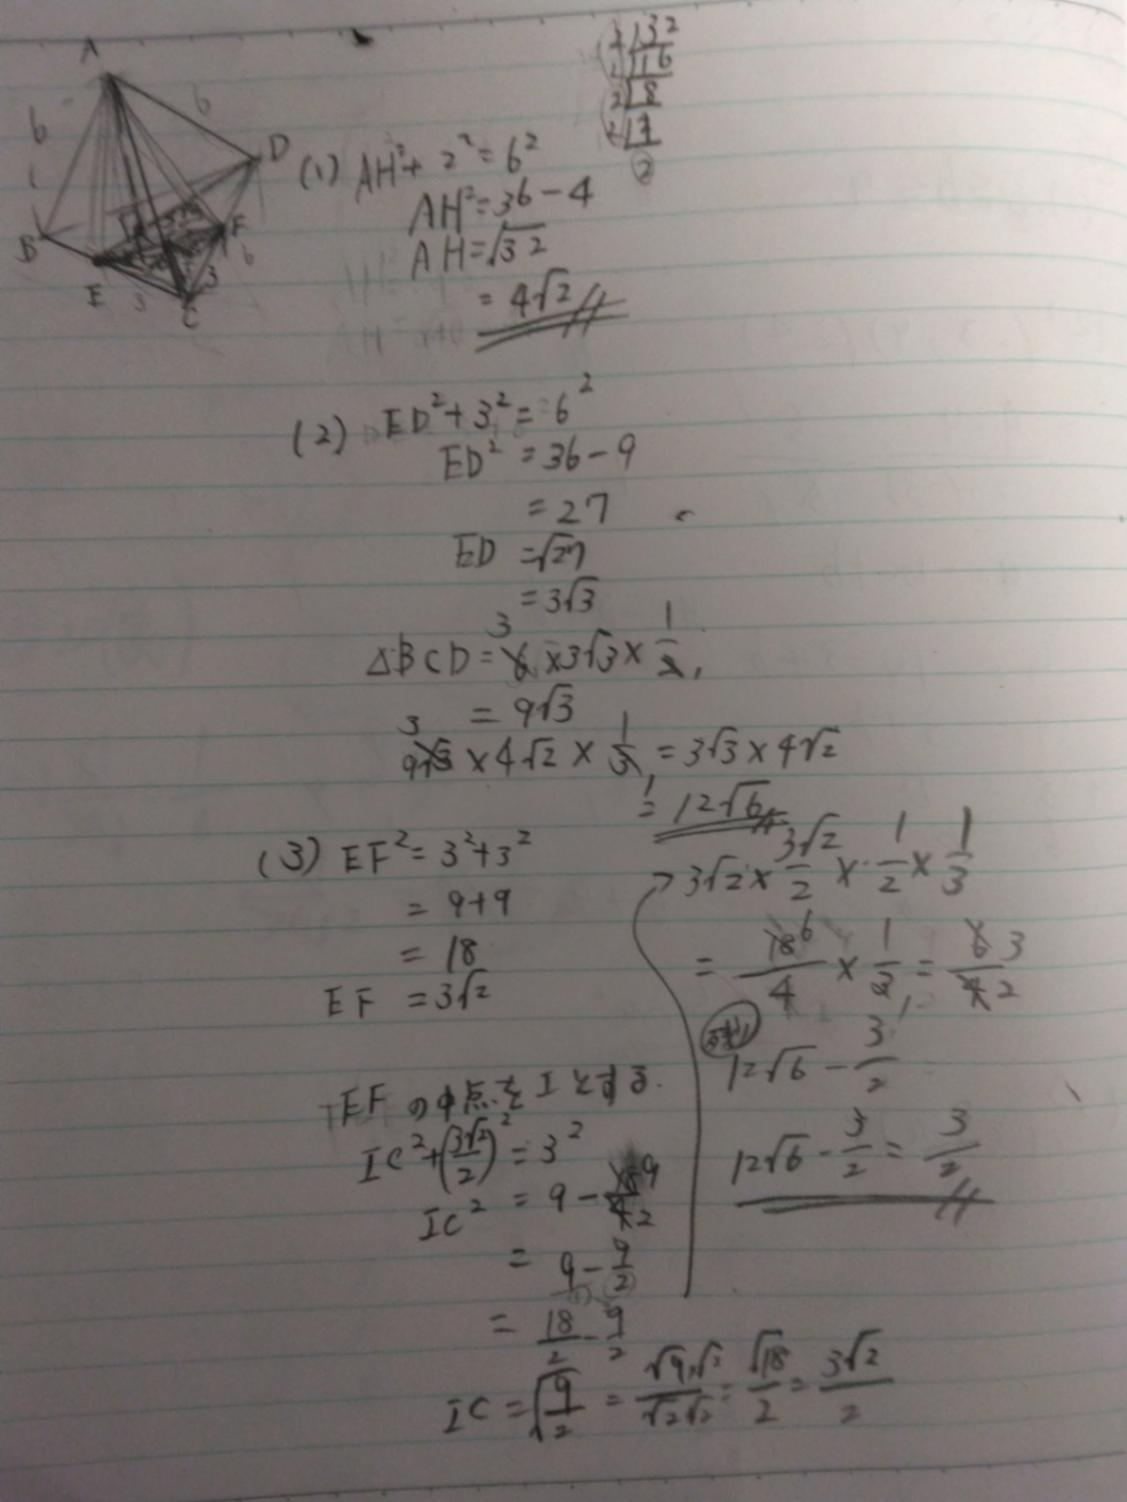 A
6
6
D
B
E
3
C
3
F
6
2 | 32
2 | 16
2 | 8
2 | 4
2
(1) AH²+ 2² = 6²
AH² = 36 - 4
AH = √32
= 4√2
(2) ED² + 3² = 6²
ED² = 36 - 9
= 27
ED = √27
= 3√3
3
△BCD = 6 × 3√3 × 1/2
= 9√3
3
9√3 × 4√2 × 1/3 = 3√3 × 4√2
= 12√6
(3) EF² = 3² + 3²
= 9 + 9
= 18
EF = 3√2
EFの中点をIとする.
IC² + (3√2/2)² = 3²
IC² = 9 - 18/4 9/2
= 9 - 9/2
= 18/2 - 9/2
IC = √9/2 = √9×√2/√2√2 = √18/2 = 3√2/2
→ 3√2 × 3√2/2 × 1/2 × 1/3
= 18/4 6 × 1/3 = 6/4 3/2
12√6 - 3/2
12√6 - 3/2 = 3/2